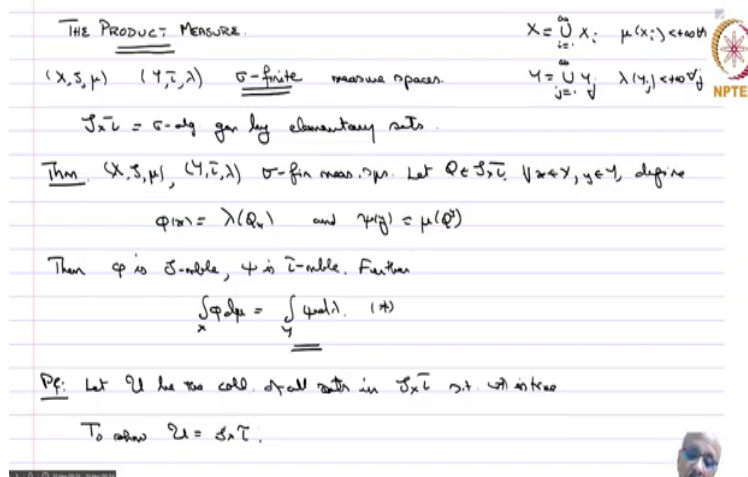 THE PRODUCT MEASURE. X = ∪_{i=1}^∞ X_i μ(X_i) < +∞ ∀i
(X, S, μ) (Y, τ, λ) σ-finite measure spaces. Y = ∪_{j=1}^∞ Y_j λ(Y_j) < +∞ ∀j
NPTEL
S×τ = σ-alg gen by elementary sets.
Thm. (X, S, μ), (Y, τ, λ) σ-fin meas. sps. Let Q ∈ S×τ. ∀ x∈X, y∈Y, define
φ(x) = λ(Q_x) and ψ(y) = μ(Q^y)
Then φ is S-mble, ψ is τ-mble. Further
∫_X φ dμ = ∫_Y ψ dλ. (*)
Pf: Let U be the coll. of all sets in S×τ s.t. (*) is true
To show U = S×τ.